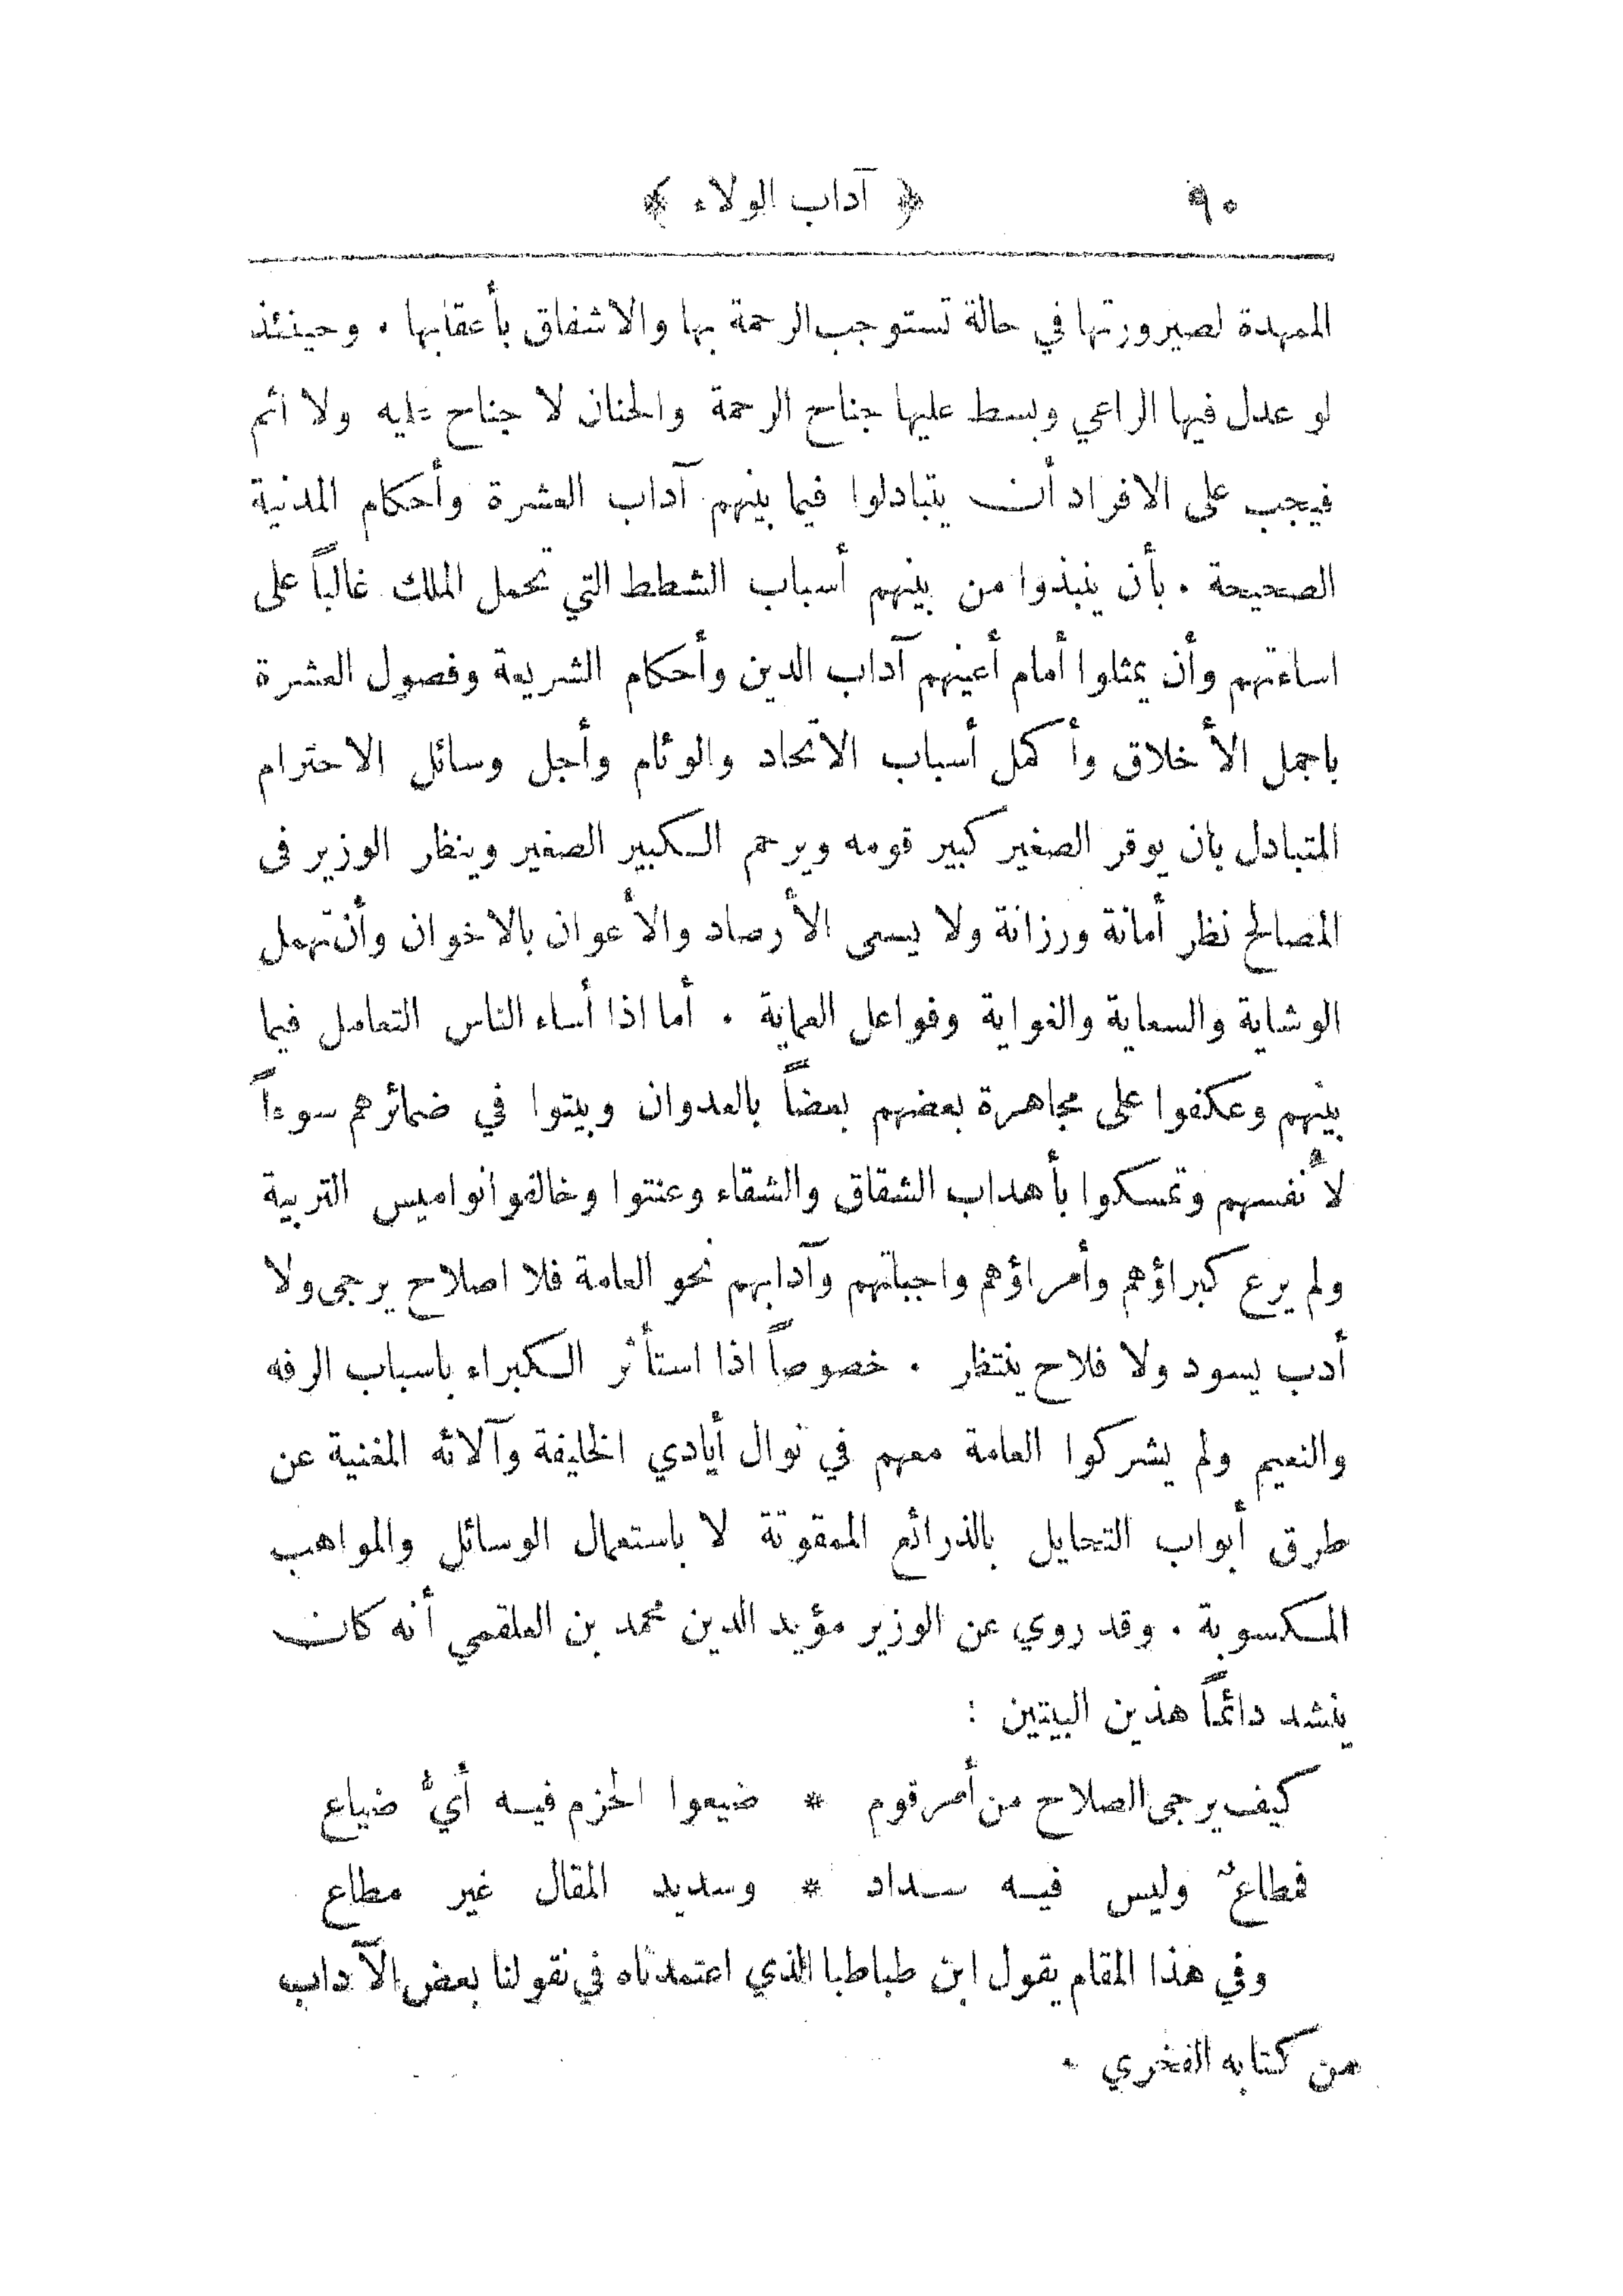 ٩٠ ﴿ آداب الولاء ﴾
الممهدة لصيرورتها في حالة تستوجب الرحمة بها والاشفاق بأعقابها . وحينئذ
لو عدل فيها الراعي وبسط عليها جناح الرحمة والحنان لا جناح عليه ولا اثم
فيجب على الافراد أن يتبادلوا فيما بينهم آداب العشرة وأحكام المدنية
الصحيحة . بأن ينبذوا من بينهم أسباب الشطط التي تحمل الملك غالباً على
اساءتهم وأن يمثلوا أمام أعينهم آداب الدين وأحكام الشريعة وفصول العشرة
باجمل الأخلاق وأكمل أسباب الاتحاد والوئام وأجل وسائل الاحترام
المتبادل بان يوقر الصغير كبير قومه ويرحم الكبير الصغير وينظر الوزير فى
المصالح نظر أمانة ورزانة ولا يسمى الأرصاد والأعوان بالاخوان وأن تهمل
الوشاية والسعاية والغواية وفواعل العماية . أما اذا أساء الناس التعامل فيما
بينهم وعكفوا على مجاهرة بعضهم بعضاً بالعدوان وبيتوا في ضمائرهم سوءاً
لأنفسهم وتمسكوا بأهداب الشقاق والشقاء وعنتوا وخالفوا نواميس التربية
ولم يرع كبراؤهم وأمراؤهم واجباتهم وآدابهم نحو العامة فلا اصلاح يرجى ولا
أدب يسود ولا فلاح ينتظر . خصوصاً اذا استأثر الكبراء باسباب الرفه
والنعيم ولم يشركوا العامة معهم في نوال أيادي الخليفة وآلائه المغنية عن
طرق أبواب التحايل بالذرائع الممقوتة لا باستعمال الوسائل والمواهب
المكسوبة . وقد روي عن الوزير مؤيد الدين محمد بن العلقمي أنه كان
ينشد دائماً هذين البيتين :
كيف يرجى الصلاح من أمر قوم * ضيعوا الحزم فيه أيُّ ضياع
فمطاعٌ وليس فيه سداد * وسديد المقال غير مطاع
وفي هذا المقام يقول ابن طباطبا الذي اعتمدناه في نقولنا بعض الآداب
من كتابه الفخري .